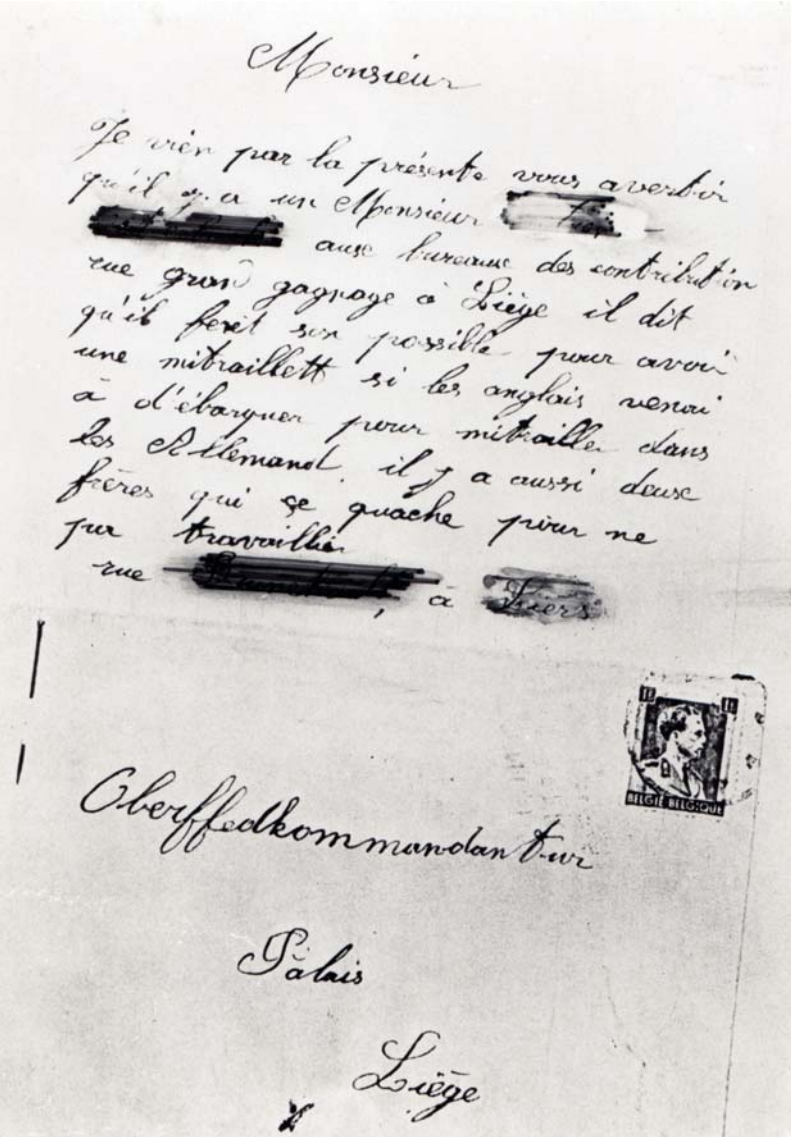 Monsieur
Je vien par la présente vous avertir
qu'il y a un Monsieur
auxe bureaux des contribution
rue grand gagnage à Liège il dit
qu'il feret son possible pour avoir
une mitraillett si les anglais venai
à d'ébarquer pour mitrailler dans
les Allemand. il y a aussi deux
frères qui çe quache pour ne
pas travaillier
rue , à Liers
1F 1F
BELGIE BELGIQUE
Oberffedkommandantur
Palais
Liège